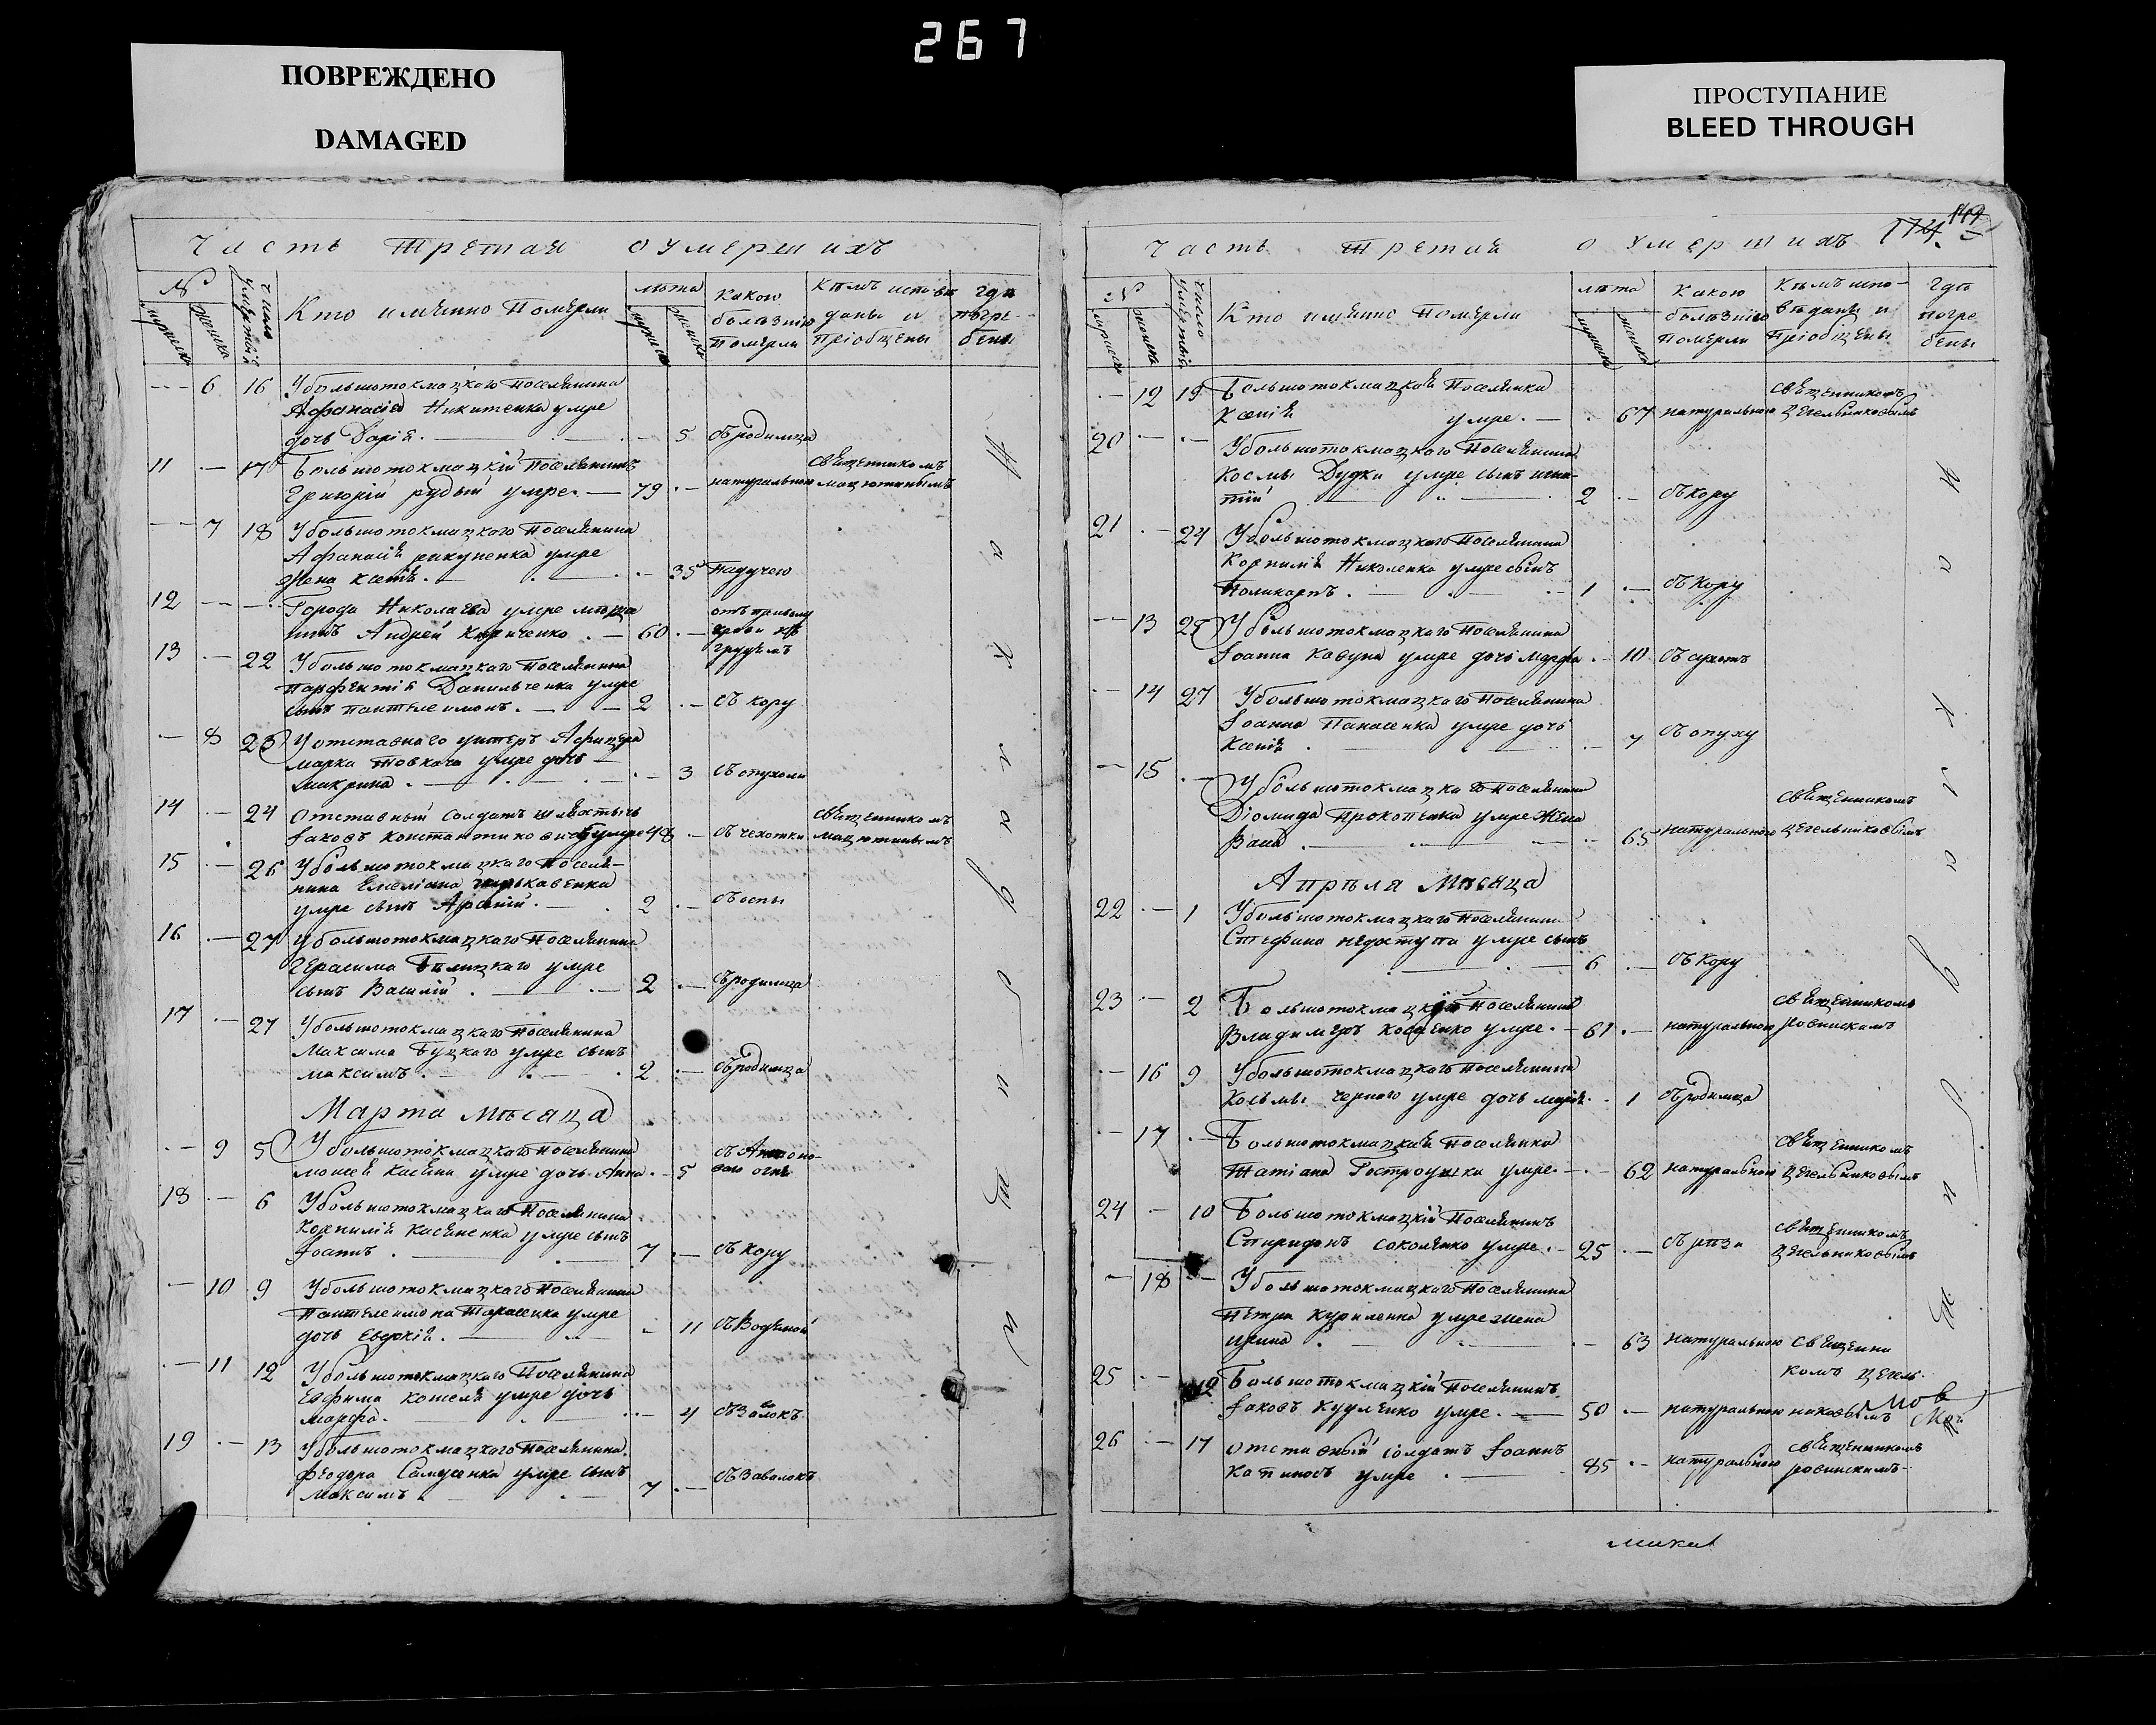 267
ПОВРЕЖДЕНО
DAMAGED
ПРОСТУПАНИЕ
BLEED THROUGH
Часть Третая о умершихъ
№
мужеска
женска
число умертвій
Кто имянно Померли
лѣта
мужеска
женска
Какою
болѣзнію
Померли
Кѣмъ исповѣ
даны и
Пріобщены
гдѣ
погре
бены
На кладбищи
--- 6 16 У большотокмацкого поселянина
Афанасія Никитенка умре
дочь Дарія. — 5 Съ родимца
11 — 17 Большотокмацкій поселянинъ Священникомъ
Григорій рудый умре. — 79 — натуральною мацютинымъ
— 7 18 У большотокмацкого поселянина
Афанасія умре
жена Ксенія. — 35 Падучею
12 — — Города Николаева умре мѣща
нинъ Андрей Кириченко. — 60 —
грудямъ
13 — 22 У большотокмацкаго поселянина
Парфентія Данильченка умре
сынъ пантелеимонъ. — 2 — Съ кору
— 8 23 У отставнаго унтеръ Афицера
марка товкача умре дочь
макрина — 3 Съ опухоли
14 — 24 Отставный солдатъ Священникомъ
Іаковъ Константиновичь умре 48 — Съ чехотки мацютинымъ
15 — 26 У большотокмацкаго поселя-
нина Емеліана
умре сынъ Арсеній. — 2 — Съ оспы
16 — 27 У большотокмацкаго поселянина
Герасима Билицкаго умре
сынъ Василій — 2 — Съ родимца
17 — 27 У большотокмацкаго поселянина
Максима Буцкаго умре сынъ
максимъ. — 2 — Съ родимца
Марта мѣсяца
— 9 5 У большотокмацкаго поселянина Съ Антоно
моисея Касяна умре дочь Анна. — 5 ваго огня
18 — 6 У большотокмацкаго поселянина
Корнилія Касяненка умре сынъ
Іоаннъ. — 7 — Съ кору
— 10 9 У большотокмацкаго поселянина
Пантелеимона Тарасенка умре
дочь Евдокія. — 11 Съ Водяной
— 11 12 У большотокмацкаго Поселянина
Евфима Кошеля умре дочь
марфа. — 4 Съ Заволокъ
19 — 13 У большотокмацкаго Поселянина
феодора Самусенка умре сынъ
Максимъ. — 7 — Съ Заволокъ
Часть Третая о умершихъ
149
№
мужеска
женска
число умертвій
Кто имянно Померли
лѣта
мужеска
женска
Какою
болѣзнію
Померли
Кѣмъ испо-
вѣданы и
Пріобщены
гдѣ
погре
бены
На кладбищ
— 12 19 Большотокмацкая Поселянка Священникомъ
Ксенія умре. — 67 натуральною Цегельниковымъ
20 — — У большотокмацкаго Поселянина
Космы Дудки умре сынъ игна-
тій — 2 — Съ кору
21 — 24 У большотокмацкаго Поселянина
Корнилія Николенка умре сынъ
Поликарпъ. — 1 — Съ кору
— 13 25 У большотокмацкаго Поселянина
Іоанна Кавуна умре дочь марфа. — 10 Съ сухотъ
— 14 27 У большотокмацкаго Поселянина
Іоанна Панасенка умре дочь
Ксенія — 7 Съ опуху
— 15 — У большотокмацкаго Поселянина Священникомъ
Діомида Прокопенка умре жена
— 65 натуральною Цегельниковымъ
Апрѣля Мѣсяца
22 — 1 У большотокмацкаго Поселянина
Стефана недоступа умре сынъ
— 6 — Съ кору
23 — 2 Большотокмацкій Поселянинъ Священникомъ
Владимеръ умре. — 61 — натуральною ровинскимъ
— 16 9 У большотокмацкаго Поселянина
Косьмы черного умре дочь марія. — 1 Съ родимца
— 17 — Большотокмацкая Поселянка Священникомъ
Татіана умре. — 62 натуральною Цегельниковымъ
24 — 10 Большотокмацкій Поселянинъ Священникомъ
Спиридонъ Соколенко умре. — 25 — Съ рѣзи Цегельниковымъ
— 18 — У большотокмацкаго Поселянина
Петра Куриленка умре жена
ирина. — 63 натуральною Священни
25 — 12 Большотокмацкій Поселянинъ комъ Цегель-
Іаковъ умре. — 50 — натуральною никовымъ
26 — 17 отставный солдатъ Іоаннъ Священникомъ
умре — 85 — натуральною ровинскимъ